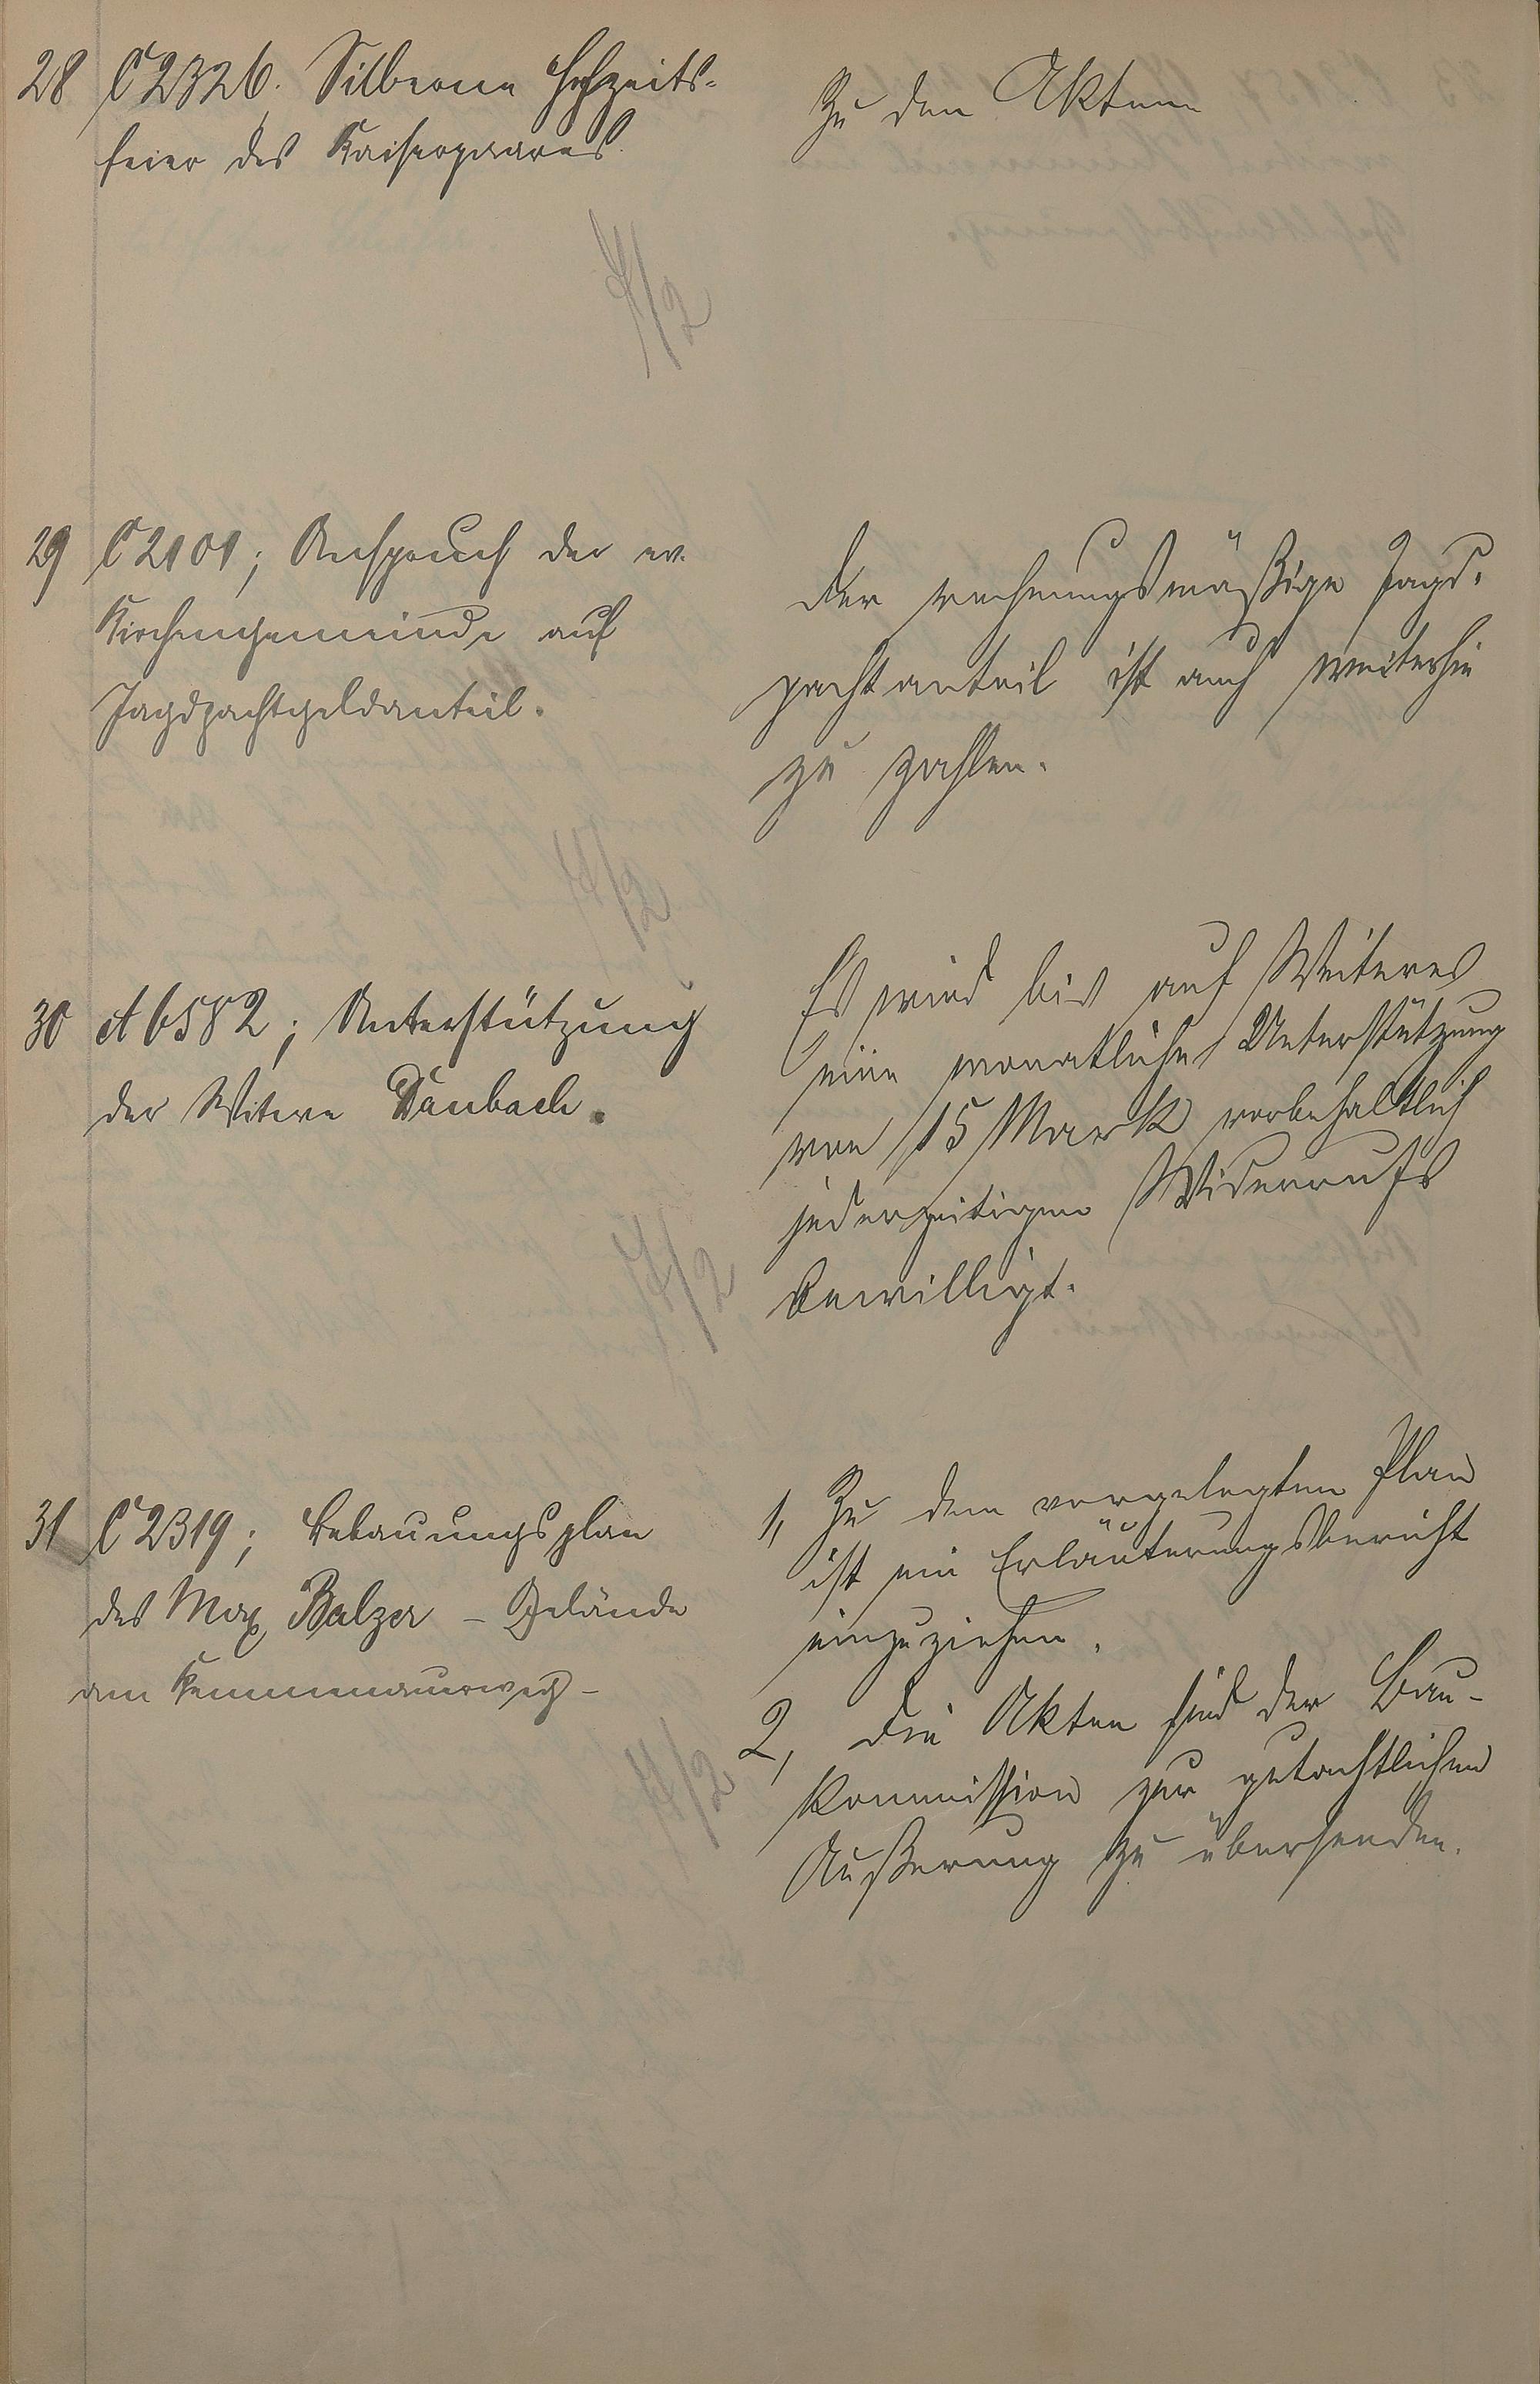 28 C 2326. Silberne Hochzeits-
feier des Kaiserpaares.
Zu den Akten
29 C 2101; Anspruch der ev.
Kirchengemeinde auf
Jagdpachtgeldanteil.
Der rechnungsmäßige Jagd-
pachtanteil ist auch weiterhin
zu zahlen.
30 A 6582; Unterstützung
der Witwe Daubach.
Es wird bis auf Weiteres
eine monatliche Unterstützung
von 15 Mark vorbehaltlich
jederzeitigen Widerrufs
bewilligt.
31 C 2319; Bebauungsplan
des Max Balzer - Gelände
am Kemmenauerweg -
1, Zu dem vorgelegten Plan
ist ein Erläuterungsbericht
einzuziehen.
2, Die Akten sind der Bau-
kommission zur gutachtlichen
Äußerung zu übersenden.